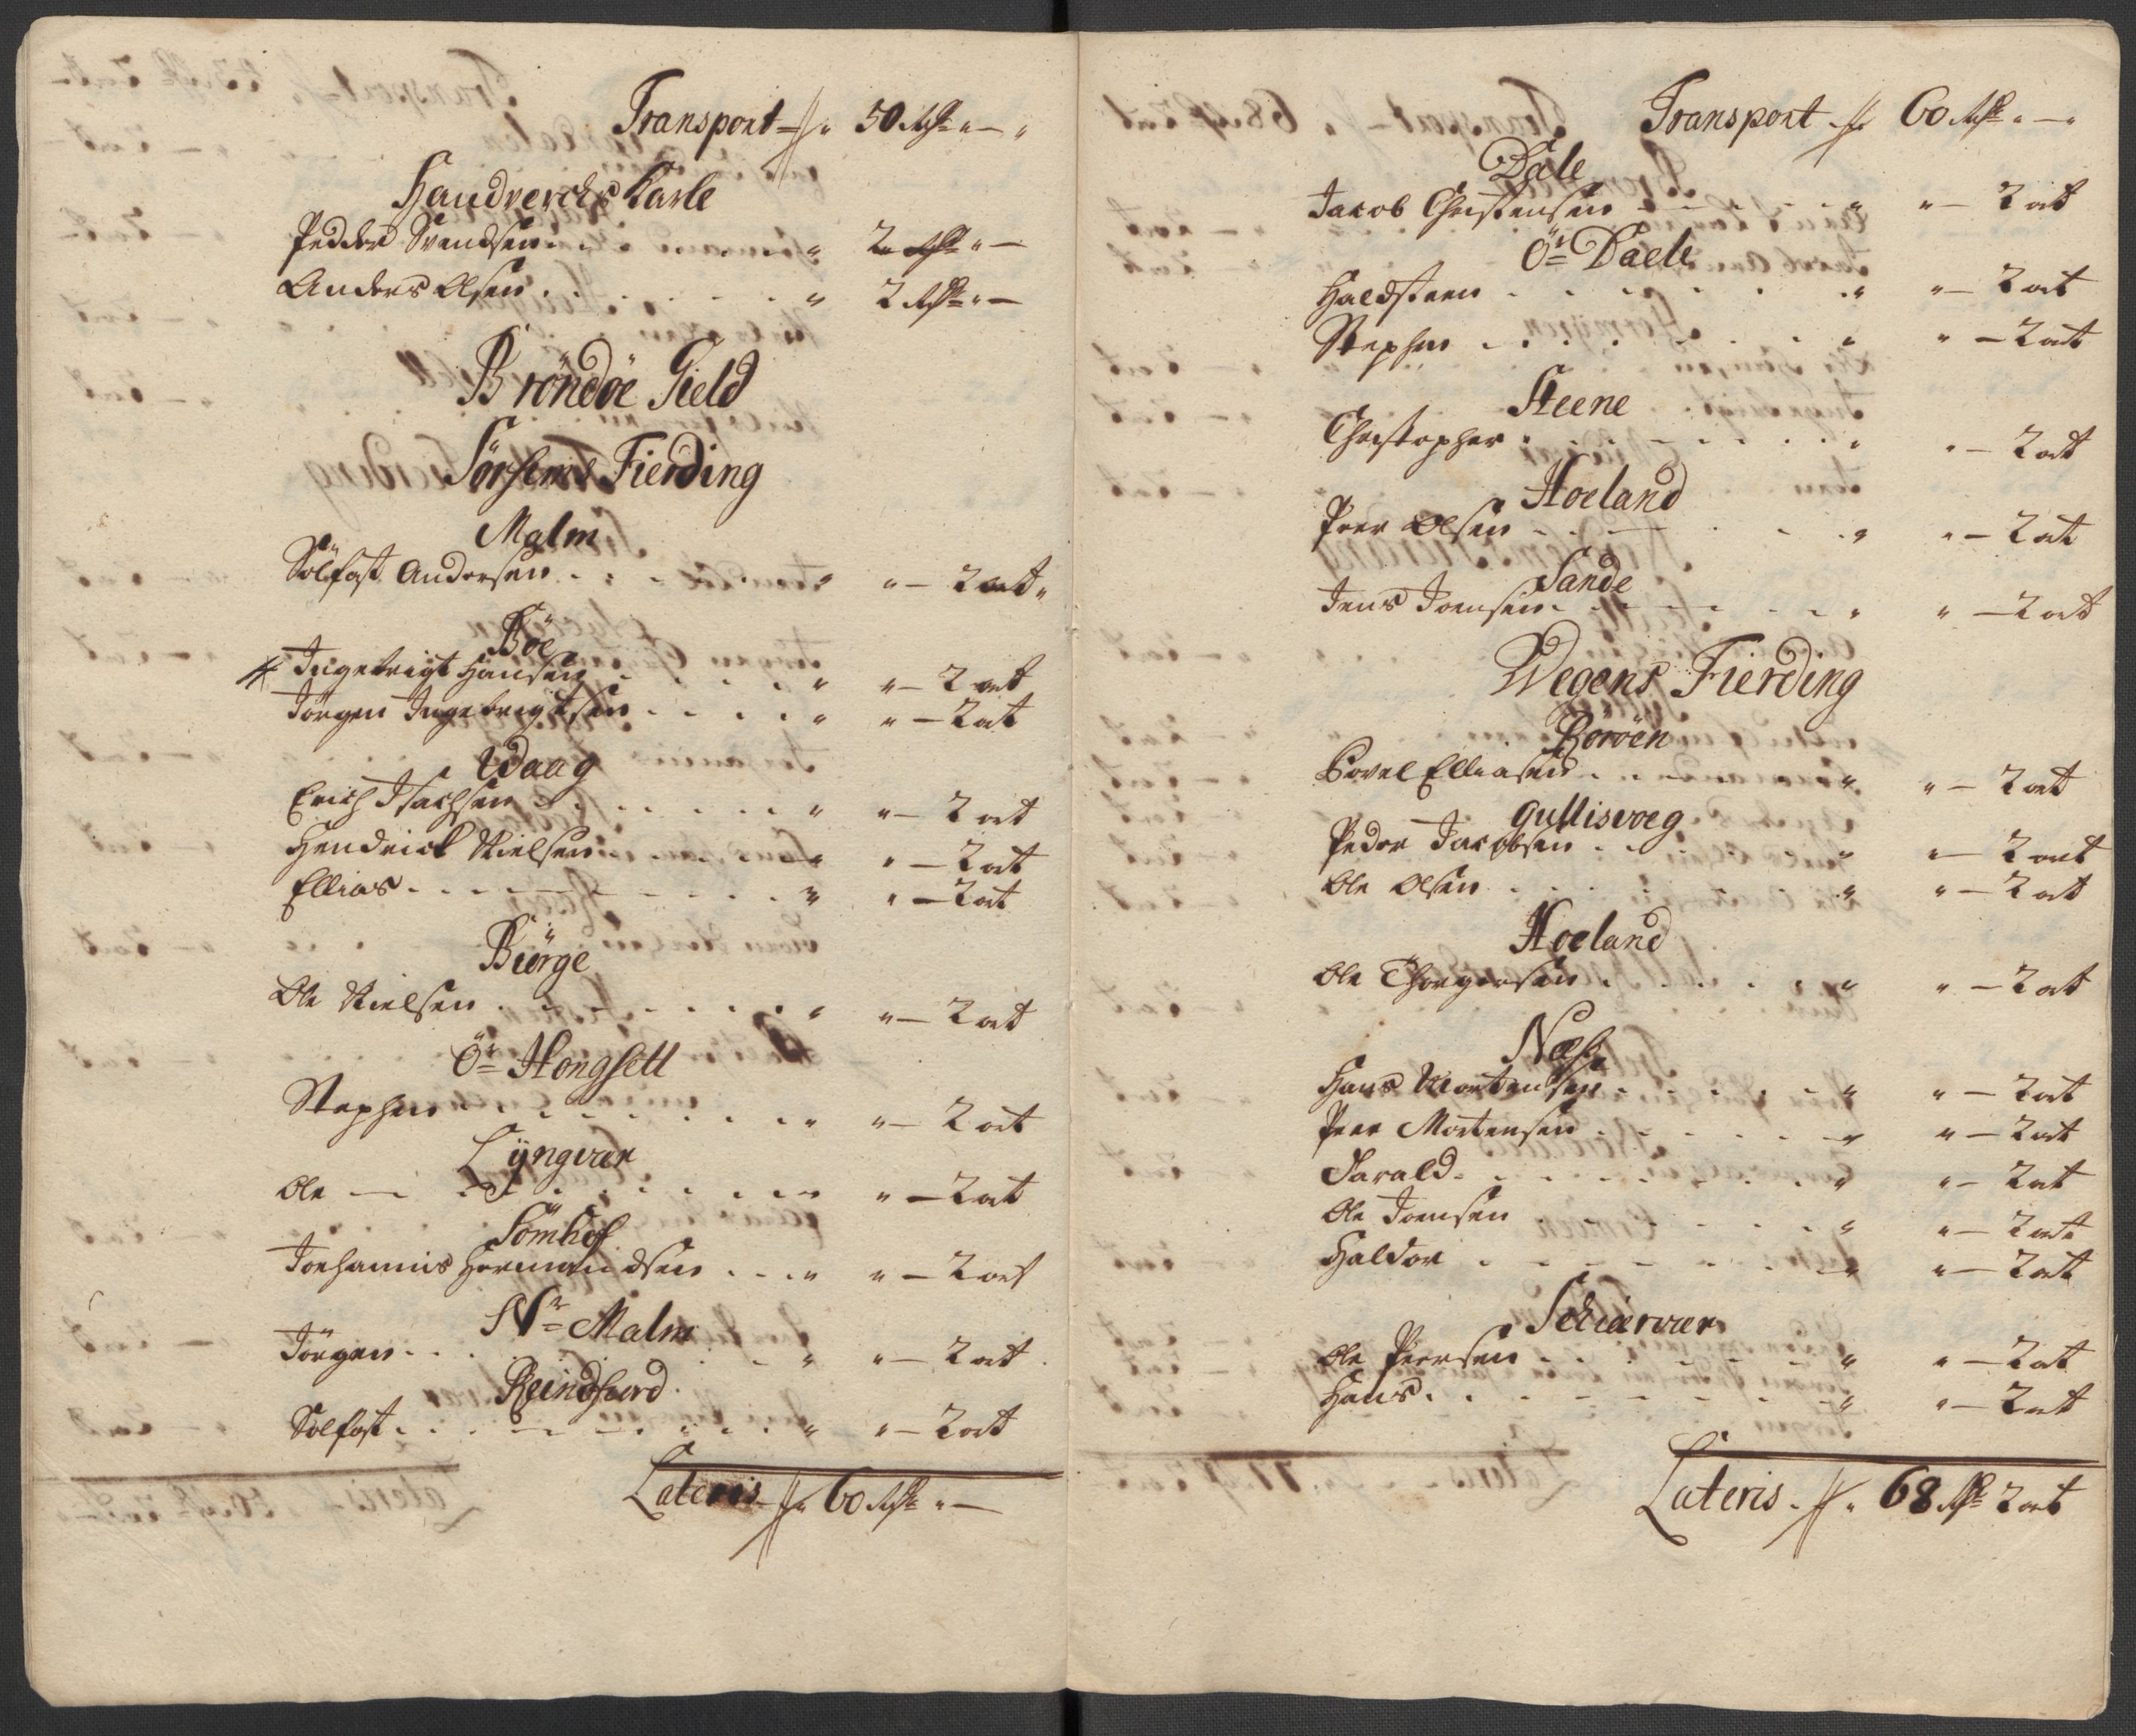 Transport - 50 Rdr " — "
Handverchs Karle
Peder Svendsen . . . " 2 Rdr " —
Anders Olsen . . . " 2 Rdr " —
Bröndöe Gield
Sörsems Fierding
Malm
Sölfast Andersen . . . " " — 2 ort "
Böe
Ingebrigt Hansen . . . " " — 2 ort
Jörgen Ingebrigtsen . . . " " — 2 ort
Waag
Erich Isachsen . . . " " — 2 ort
Hendrick Nielsen . . . " " — 2 ort
Ellias . . . " " — 2 ort
Biörge
Ole Nielsen . . . " " — 2 ort
Ör Hongsett
Stephen . . . " " — 2 ort
Lÿngvær
Ole — . . . " " — 2 ort
Sömhof
Joehannis Hermandsen . . . " " — 2 ort
Nr Malm
Jörgen . . . " " — 2 ort
Reindsfiord
Solfast . . . " " — 2 ort
Lateris - 60 Rdr " —
Transport - 60 Rdr " — "
Dale
Jacob Christensen . . . " " — 2 ort
Ör Daele
Haldsteen . . . " " — 2 ort
Stephen . . . " " — 2 ort
Steene
Christopher . . . " " — 2 ort
Hoeland
Peer Olsen . . . " " — 2 ort
Sande
Jens Joensen . . . " " — 2 ort
Wegens Fierding
Röröen
Povel Elliasen . . . " " — 2 ort
Gullisvoeg
Peder Jacobsen . . . " " — 2 ort
Ole Olsen . . . " " — 2 ort
Hoeland
Ole Thorgersen . . . " " — 2 ort
Næs
Hans Mortensen . . . " " — 2 ort
Peer Mortensen . . . " " — 2 ort
Jarald . . . " " — 2 ort
Ole Joensen . . . " " — 2 ort
Haldor . . . " " — 2 ort
Schiervær
Ole Peersen . . . " " — 2 ort
Hans . . . " " — 2 ort
Lateris - " 68 Rdr 2 ort